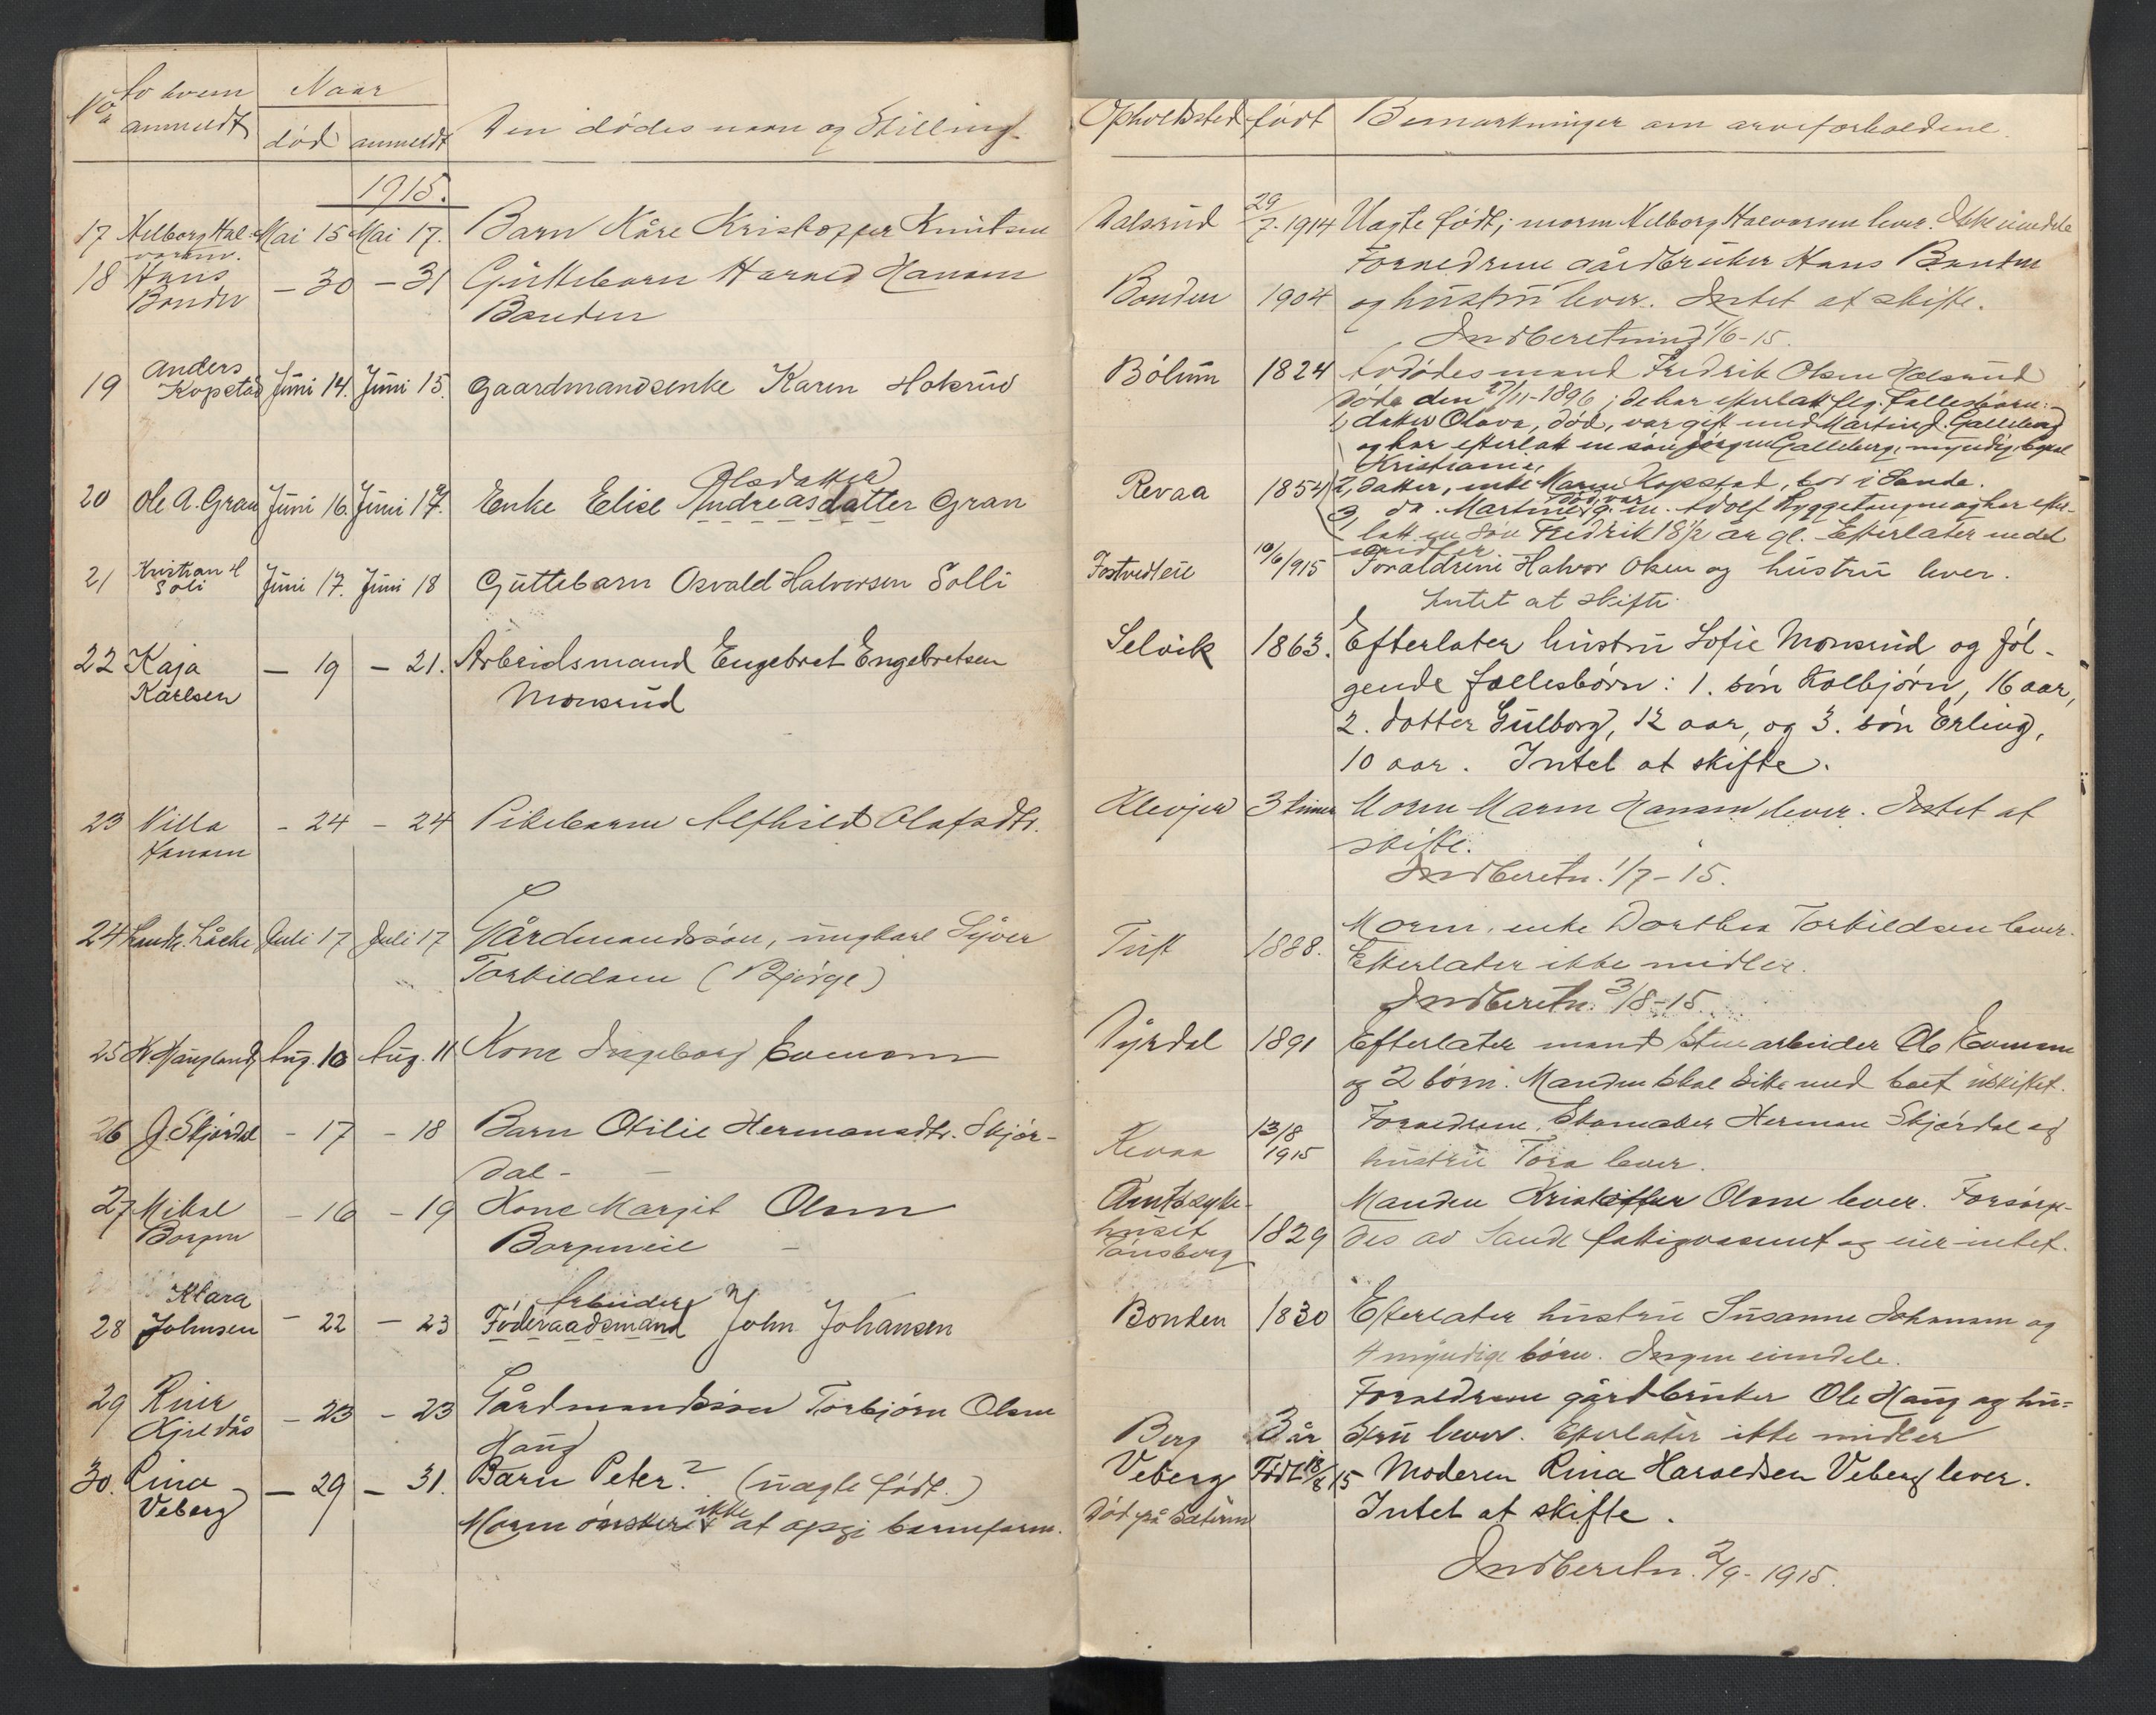 No Av hvem anmeldt Naar død anmeldt Den dødes navn og Stilling.
1915.
17 Helborg Hal- Mai 15 Mai 17. Barn Kåre Kristoffer Knutsen
varsen.
18 Hans - 30 - 31 Guttebarn Harald Hansen
Bonden Bonden
19 Anders
Kopstad Juni 14. Juni 15. Gaardmandsenke Karen Holsrud
Olsdatter
20 Ole A. Gran Juni 16. Juni 17. Enke Elise Andreasdatter Gran
21 Kristian H
Soli Juni 17. Juni 18 Guttebarn Osvald Halvorsen Solli
22 Kaja - 19 - 21. Arbeidsmand Engebret Engebretsen
Karlsen Monsrud
23 Villa - 24 - 24 Pikebarn Alfhild Olafsdtr.
Hansen
24 Lensm. Låche Juli 17 Juli 17 Gårdmandssøn, ungkarl Syver
Torkildsen (Bjørge)
25 K Haugland Aug. 10 Aug. 11 Kone Ingeborg Evensen
26 J. Skjørdal - 17 - 18 Barn Otilie Hermansdtr. Skjør-
dal -
27 Mikal - 16 - 19 Kone Margit Olsen
Borgen Borgeneie -
Klara Arbeider
28 Johnsen - 22 - 23 Føderaadsmand John Johansen
29 Rier - 23 - 23 Gårdmandssøn Torbjørn Olsen
Kjeldås Haug
30. Rina - 29 - 31. Barn Peter? (uægte født.)
Veberg Moren ønsker ikke at opgi barnefaren.
Opholdssted født Bemærkninger om arveforholdene.
Dalsrud 29/7. 1914 Uægte født; moren Helborg Halvorsen lever. Ikke eiendele
Forældrene gårdbruker Hans Bonden
Bonden 1904 og hustru lever. Intet at skifte.
Indberetning 1/6-15.
Bølum 1824 Avdødes mand Fredrik Olsen Holsrud
døde den 27/11-1896; de har efterlatt flg. fællesbørn:
1, datter Olava, død, var gift med Martin J. Galleberg
og har efterlatt en søn Jørgen Galleberg, myndig, bopæl
Kristiania,
Revaa 1854 2, datter, enke Maren Kopstad, bor i Sande.
3, do. Martine, død, var g. m. Adolf Hyggetangen og har efter-
latt en søn Fredrik 18 1/2 år gl. Efterlater endel
midler
Fostvedteie 10/6/915 Forældrene Halvor Olsen og hustru lever.
Intet at skifte.
Selvik 1863. Efterlater hustru Sofie Monsrud og føl-
gende fællesbørn: 1. søn Kolbjørn, 16 aar,
2. datter Gulborg, 12 aar, og 3. søn Erling,
10 aar. Intet at skifte.
Klevjer 3 timer Moren Maren Hansen lever. Intet at
skifte.
Indberetn. 1/7-15.
Tuft 1888. Moren, enke Dorthea Torkildsen lever.
Efterlater ikke midler.
Indberetn. 3/8-15.
Dyrdal 1891 Efterlater mand stenarbeider Ole Evensen
og 2 børn. Manden skal sitte med boet uskiftet.
Revaa 13/8 1915 Forældrene, Skomaker Herman Skjørdal og
hustru Tora lever.
Amtssyke- Manden Kristoffer Olsen lever. Forsørge-
huset
Tønsberg 1829 des av Sande fattigvæsen og eier intet.
Bonden 1830 Efterlater hustru Susanne Johansen og
4 myndige børn. Ingen eiendele.
Forældrene gårdbruker Ole Haug og hu-
Berg 3 år stru lever. Efterlater ikke midler
Veberg Født 18/8 15 Moderen Rina Haraldsen Veberg lever.
Død på Sætern Intet at skifte.
Indberetn. 2/9-1915.